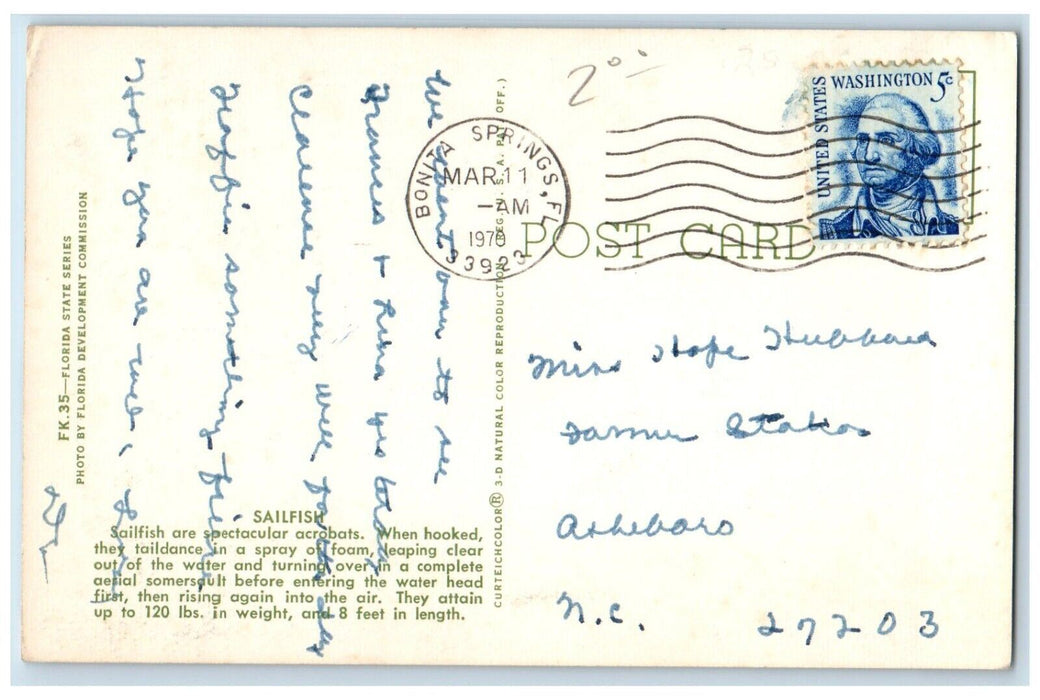 FK.35—FLORIDA STATE SERIES
PHOTO BY FLORIDA DEVELOPMENT COMMISSION
We went over to see
Frances + Lura yesterday
Clarence very well for the day
Traffic something fierce
Hope you are well,
SAILFISH
Sailfish are spectacular acrobats. When hooked,
they taildance in a spray of foam, leaping clear
out of the water and turning over in a complete
aerial somersault before entering the water head
first, then rising again into the air. They attain
up to 120 lbs. in weight, and 8 feet in length.
CURTEICHCOLOR® 3-D NATURAL COLOR REPRODUCTION (REG. U.S.A. PAT. OFF.)
BONITA SPRINGS, FL
MAR 11
—AM
1970
33923
2.00
UNITED STATES
WASHINGTON 5c
POST CARD
Miss Hope Hubbard
Farmer Station
Asheboro
N.C. 27203